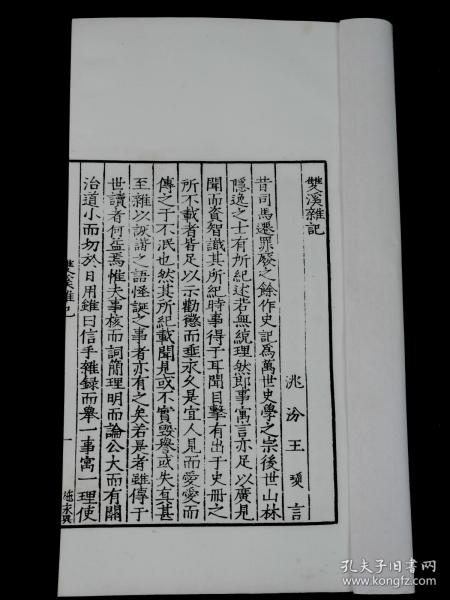 雙溪雜記
洮汾王瓊言
昔司馬遷罪廢之餘作史記為萬世史學之宗後世山林
隱逸之士有所紀述若無統理然即事寓言亦足以廣見
聞而資智識其所紀時事得于耳聞目擊有出于史冊之
所不載者皆足以示勸懲而垂永久是宜人見而愛愛而
傳之于不泯也然其所紀載聞見或不實毀譽或失真甚
至雜以詼諧之語怪誕之事者亦有之矣若是者雖傳于
世讀者何益焉惟夫事核而詞簡理明而論公大而有關
治道小而切於日用雖曰信手雜録而舉一事寓一理使
雙溪雜記
一
孔夫子旧书网
www.kongfz.com